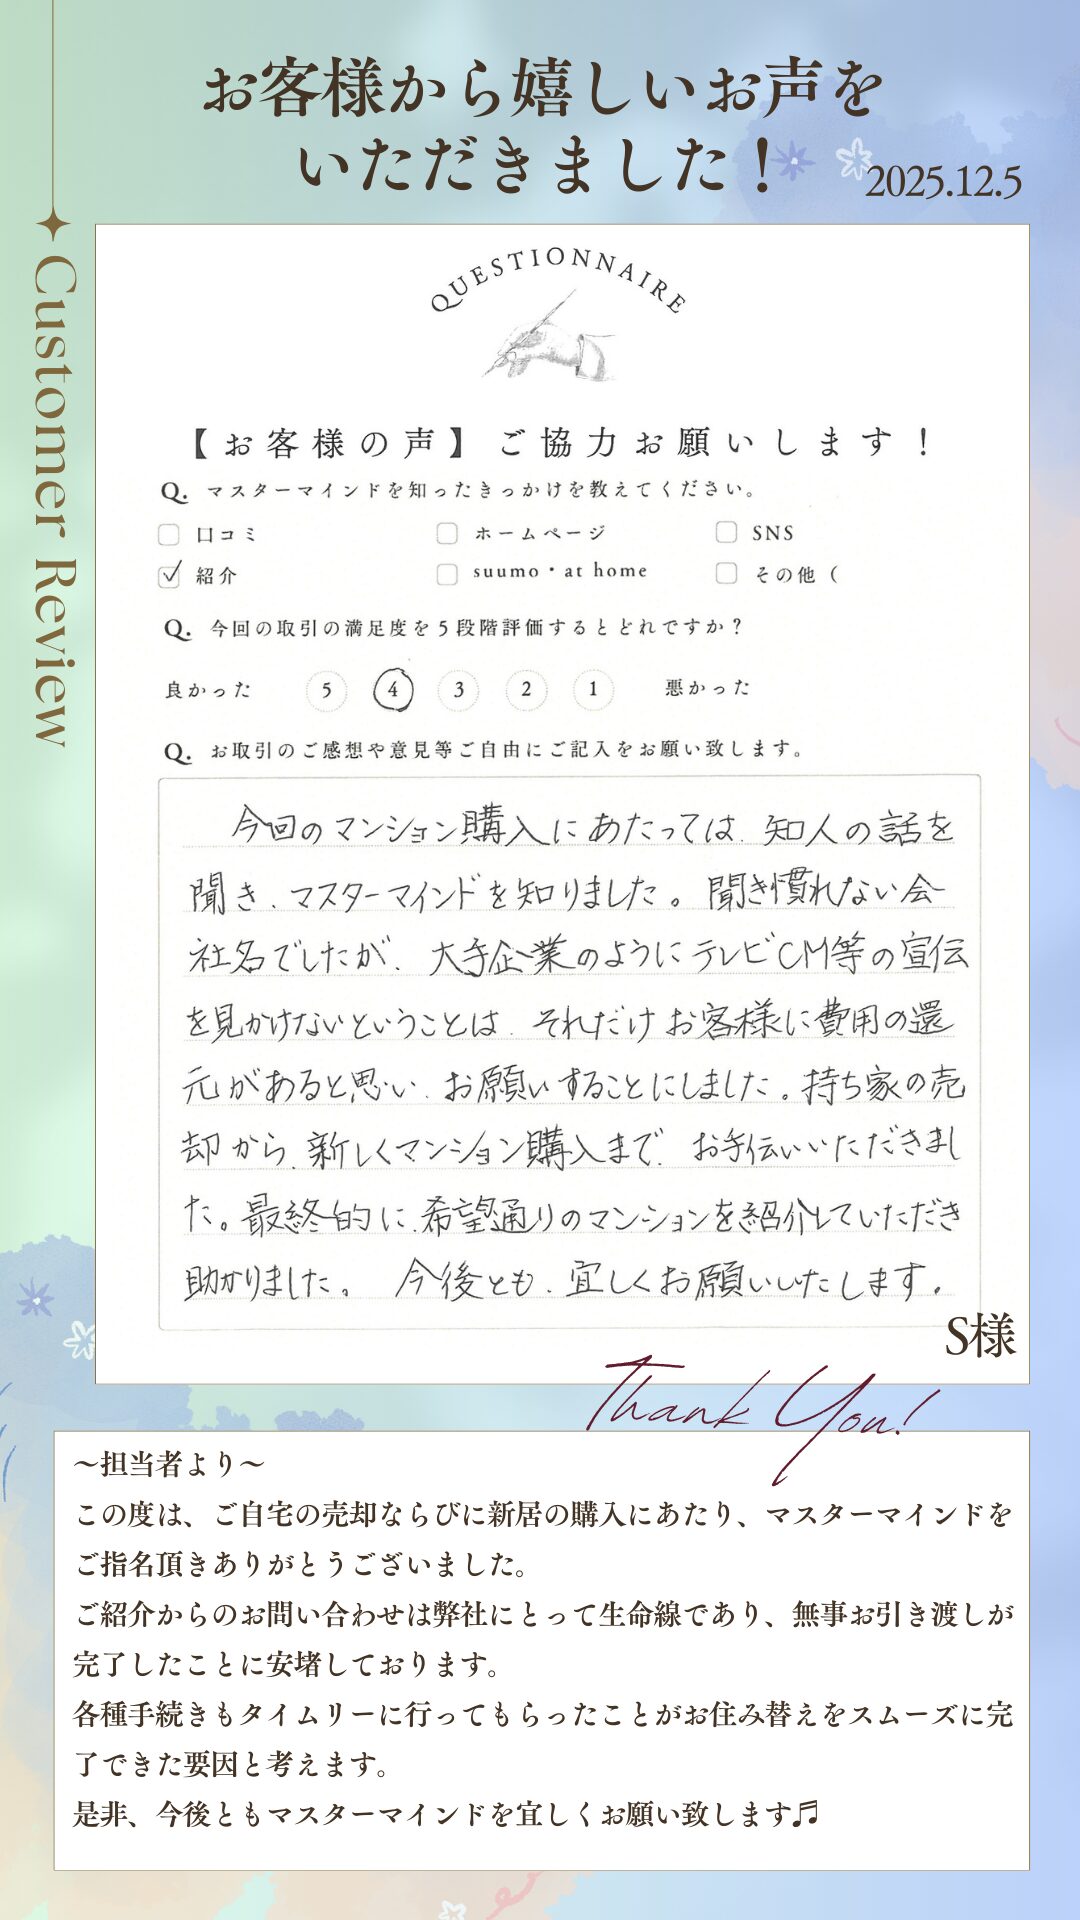 お客様から嬉しいお声を
いただきました！
2025.12.5
Customer Review
QUESTIONNAIRE
【お客様の声】ご協力お願いします！
Q. マスターマインドを知ったきっかけを教えてください。
口コミ ホームページ SNS
紹介 suumo・at home その他（
Q. 今回の取引の満足度を５段階評価するとどれですか？
良かった 5 4 3 2 1 悪かった
Q. お取引のご感想や意見等ご自由にご記入をお願い致します。
今回のマンション購入にあたっては、知人の話を
聞き、マスターマインドを知りました。聞き慣れない会
社名でしたが、大手企業のようにテレビCM等の宣伝
を見かけないということは、それだけお客様に費用の還
元があると思い、お願いすることにしました。持ち家の売
却から、新しくマンション購入まで、お手伝いいただきまし
た。最終的に、希望通りのマンションを紹介していただき
助かりました。 今後とも、宜しくお願いいたします。
S様
Thank You!
～担当者より～
この度は、ご自宅の売却ならびに新居の購入にあたり、マスターマインドを
ご指名頂きありがとうございました。
ご紹介からのお問い合わせは弊社にとって生命線であり、無事お引き渡しが
完了したことに安堵しております。
各種手続きもタイムリーに行ってもらったことがお住み替えをスムーズに完
了できた要因と考えます。
是非、今後ともマスターマインドを宜しくお願い致します♬